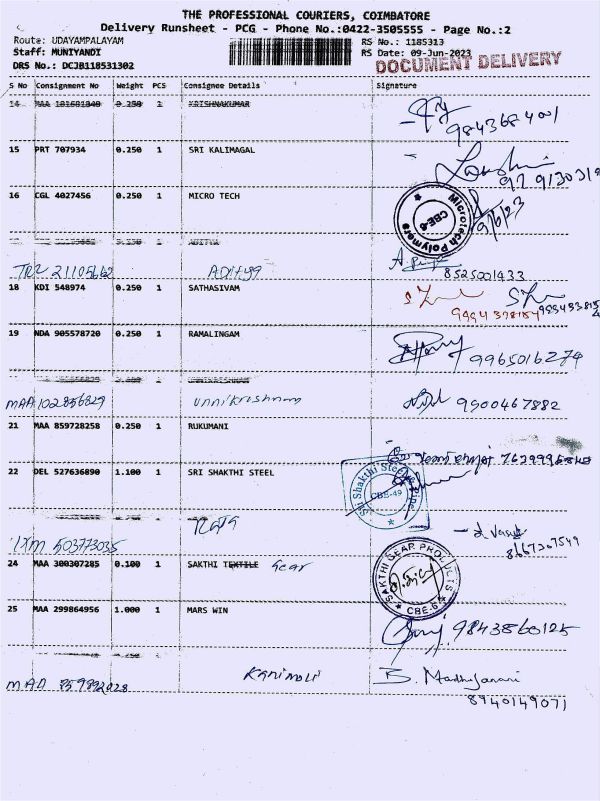 THE PROFESSIONAL COURIERS, COIMBATORE
Delivery Runsheet - PCG - Phone No.:0422-3505555 - Page No.:2
Route: UDAYAMPALAYAM RS No.: 1185313
Staff: MUNIYANDI RS Date: 09-Jun-2023
DRS No.: DCJB118531302 DOCUMENT DELIVERY
S No Consignment No Weight PCS Consignee Details Signature
14 MAA 0.250 1 KRISHNAKUMAR
9843684001
15 PRT 707934 0.250 1 SRI KALIMAGAL
16 CGL 4027456 0.250 1 MICRO TECH
Microtech Polymers CBE-6
9/6/23
TRZ 21105662 ADITYA 8525001433
18 KDI 548974 0.250 1 SATHASIVAM
19 NDA 905578720 0.250 1 RAMALINGAM
9965016274
MAA 102856829 Unnikrishnan 9900467882
21 MAA 859728258 0.250 1 RUKUMANI
22 DEL 527636890 1.100 1 SRI SHAKTHI STEEL
Sri Shakthi Steel CBE-49
IXM 503773035
8667367549
24 MAA 300307285 0.100 1 SAKTHI TEXTILE Gear
SAKTHI GEAR PRODUCTS CBE-6
25 MAA 299864956 1.000 1 MARS WIN
9843860125
MAA 859892028 Kanimoli B. Madhujanani
8940149071